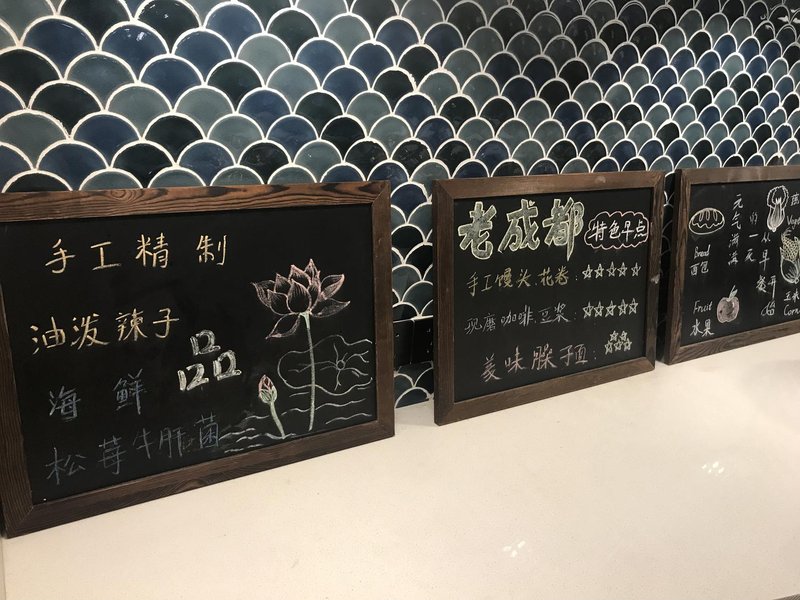 手工精制
油泼辣子
品
海鲜
松莓牛肝菌
老成都
特色早点
手工馒头.花卷:☆☆☆☆☆
现磨咖啡.豆浆:☆☆☆☆☆
美味臊子面:☆☆☆☆☆
元气满满
的一天
从早餐开始
Bread
面包
Fruit
水果
玉米
Corn